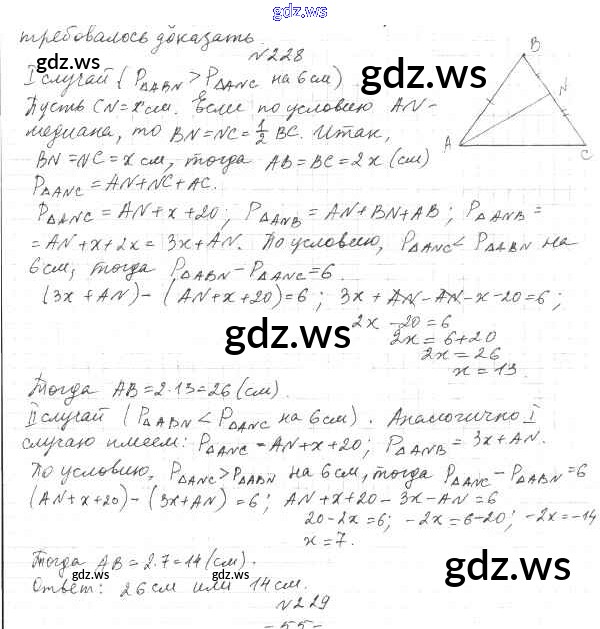 gdz.ws
требовалось доказать.
№228
I случай (P△ABN > P△ANC на 6 см)
Пусть CN = x см. Если по условию AN -
медиана, то BN = NC = 1/2 BC. Итак,
BN = NC = x см, тогда AB = BC = 2x (см)
P△ANC = AN + NC + AC.
P△ANC = AN + x + 20; P△ANB = AN + BN + AB; P△ANB =
= AN + x + 2x = 3x + AN. По условию, P△ANC < P△ABN на
6 см, тогда P△ABN - P△ANC = 6.
(3x + AN) - (AN + x + 20) = 6; 3x + AN - AN - x - 20 = 6;
2x - 20 = 6
2x = 6 + 20
2x = 26
x = 13.
Тогда AB = 2·13 = 26 (см).
II случай (P△ABN < P△ANC на 6 см). Аналогично I
случаю имеем: P△ANC = AN + x + 20; P△ANB = 3x + AN.
По условию, P△ANC > P△ABN на 6 см, тогда P△ANC - P△ABN = 6
(AN + x + 20) - (3x + AN) = 6; AN + x + 20 - 3x - AN = 6
20 - 2x = 6; -2x = 6 - 20; -2x = -14
x = 7.
Тогда AB = 2·7 = 14 (см).
Ответ: 26 см или 14 см.
№229
- 55 -
B
N
A
C
gdz.ws
gdz.ws
gdz.ws
gdz.ws
gdz.ws
gdz.ws
gdz.ws
gdz.ws